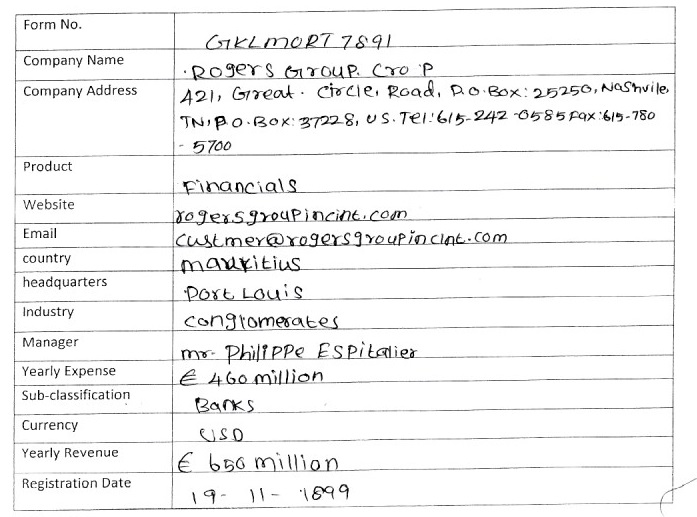 Form No.
GKLMORT 7891
Company Name
Rogers Group. Cro P
Company Address
421, Great. Circle, Road, P.O.Box: 25250, Nashvile,
TN, P.O.Box: 37228, US. Tel: 615-242-0585 Fax: 615-780
- 5700
Product
Financials
Website
rogersgroupincint.com
Email
custmer@rogersgroupincint.com
country
mauritius
headquarters
Port Louis
Industry
conglomerates
Manager
mr. Philippe ESpitalier
Yearly Expense
€ 460 million
Sub-classification
Banks
Currency
USD
Yearly Revenue
€ 650 million
Registration Date
19- 11- 1899